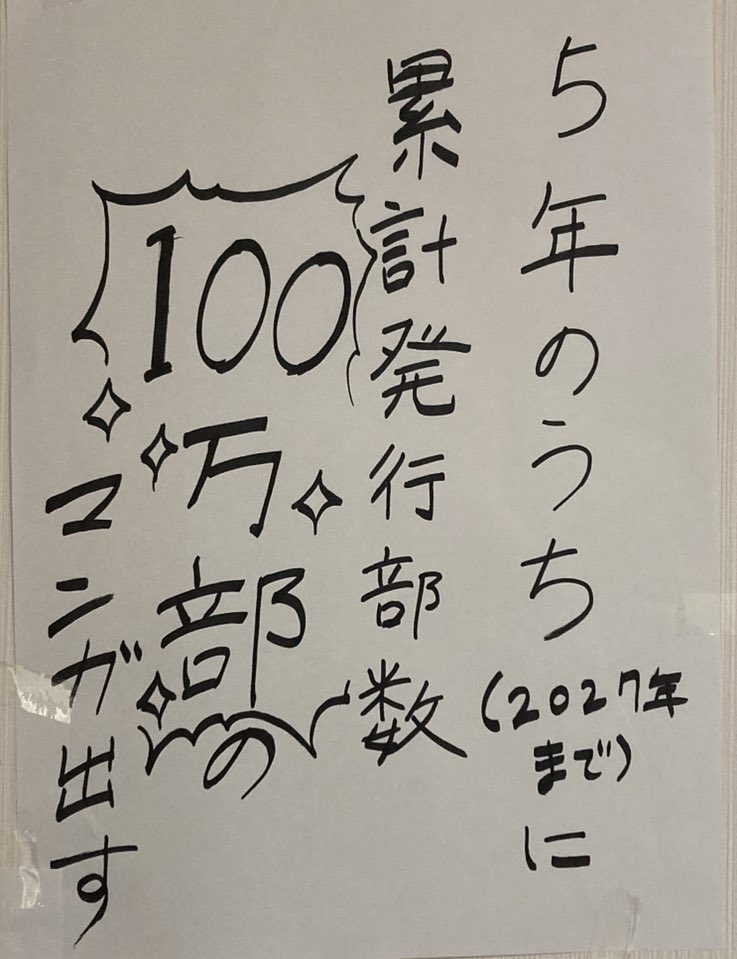 5年のうち(2027年まで)に
累計発行部数
100万部の
マンガ出す